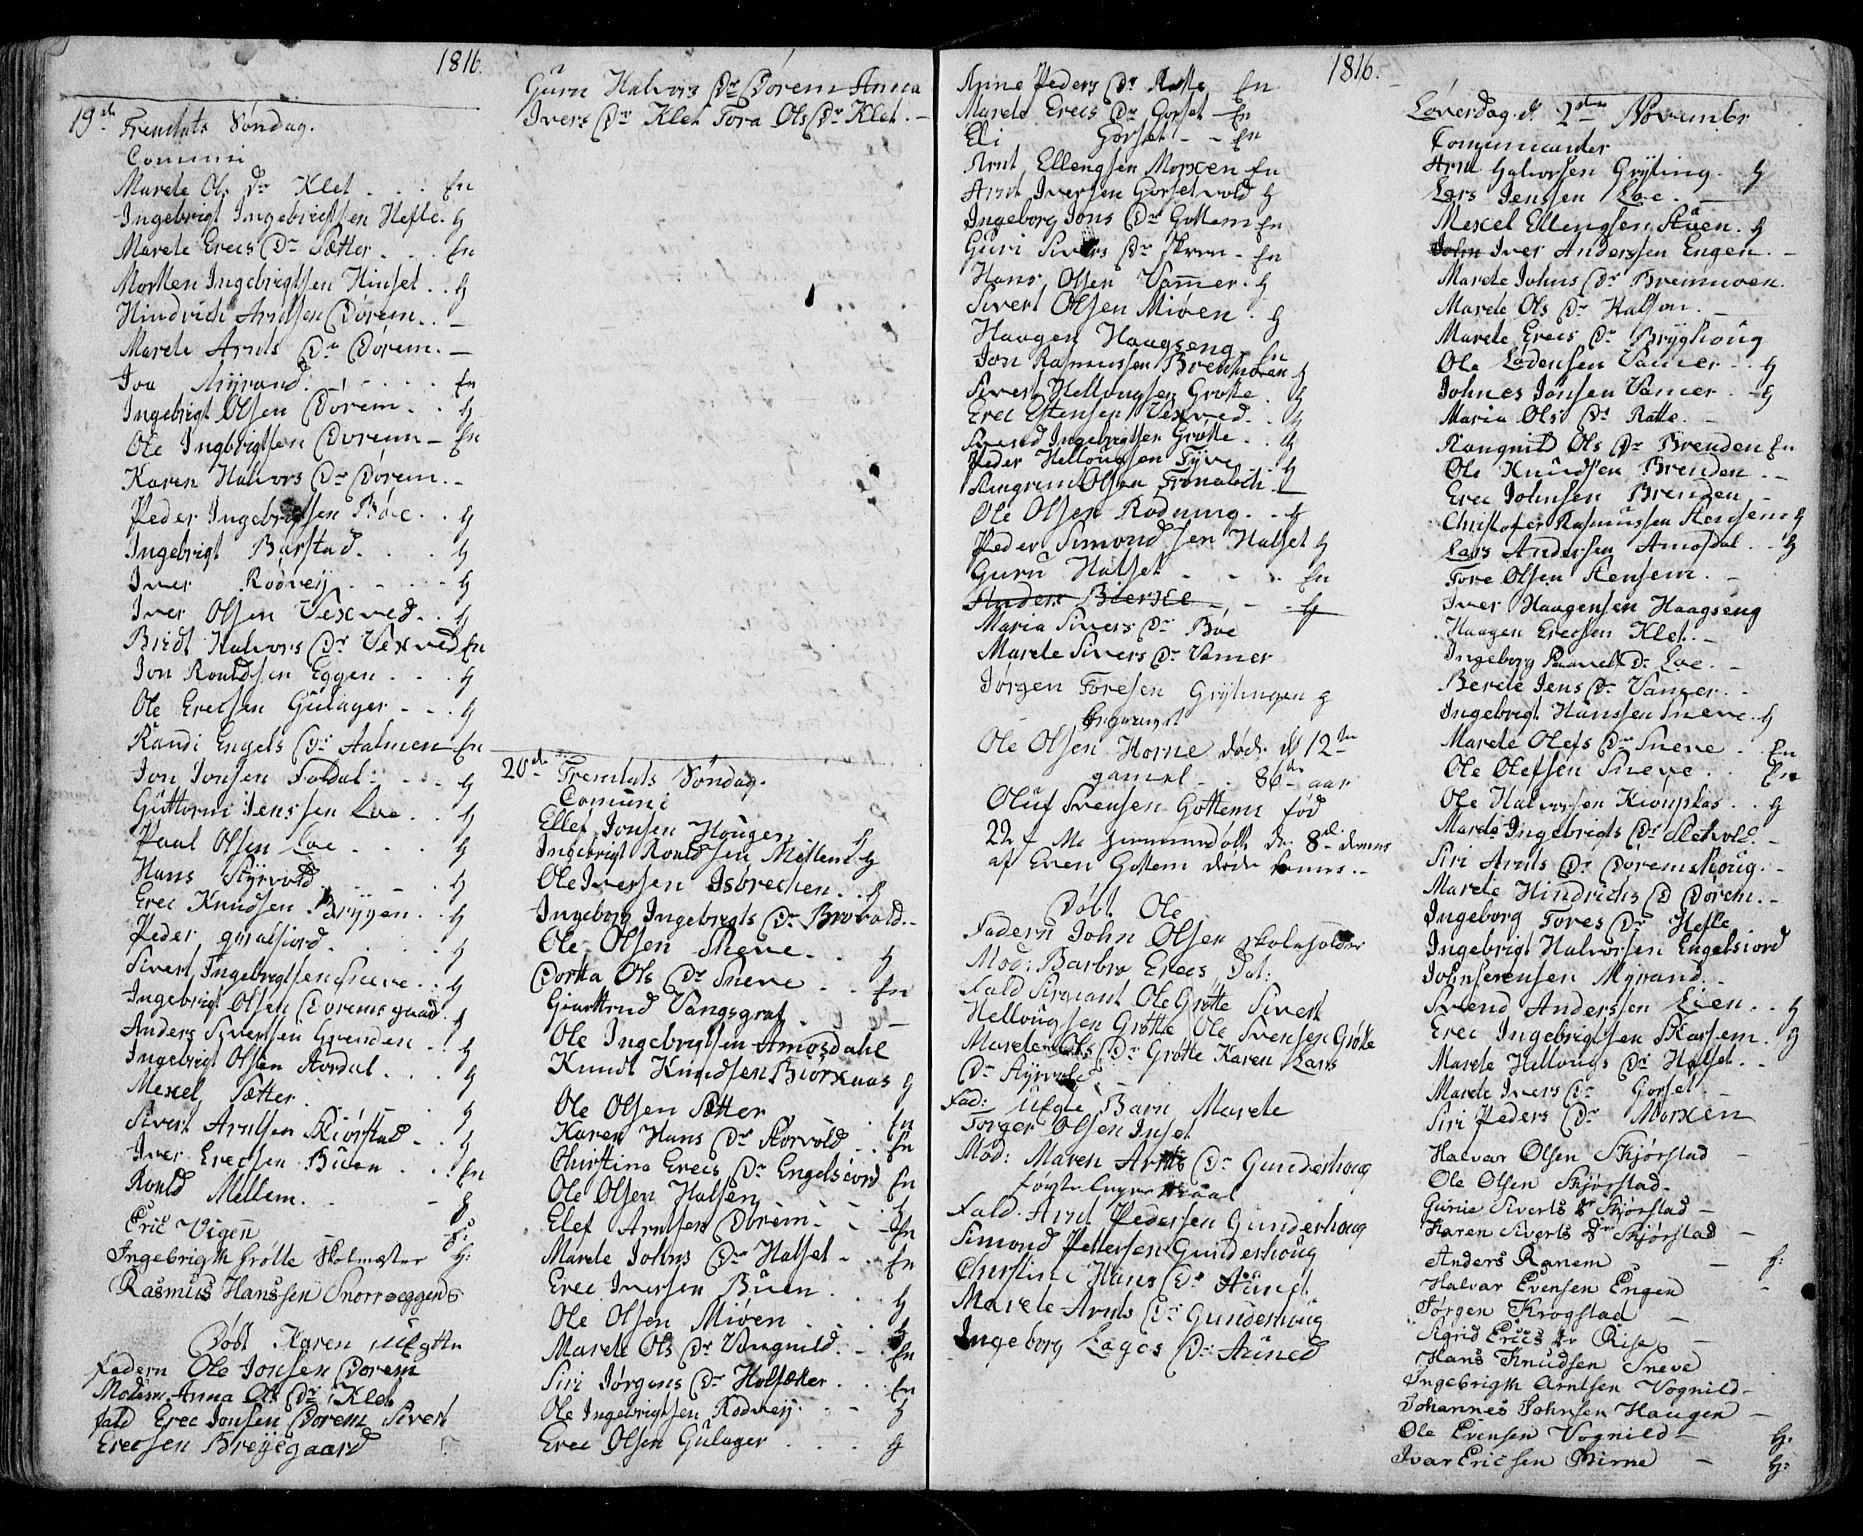 1816.
19de Fremtats Søndag.
Communi
Marete Ols Dr Klet . . . En
Ingebrigt Ingebrigtsen Hefle. H
Marete Erecs Dr Sætter . . . En
Morten Ingebrigtsen Hinset . . H
Hindrich Arntsen Dørem . . –
Marete Arnts Dr Dørem. –
Joa Myrand. . . . . En
Ingebrigt Olsen Dörem . . H
Ole Ingbrigtsen Dorem – En
Karen Halvors Dr Dörem. –
Peder Ingebrigtsen Böe . . H
Ingebrigt Barstad. . . . H
Iver Rodvey . . . . H
Iver Olsen Vexved . . H
Bredt Halvors Dr Vexved En
Jon Rouldsen Eggen . . . H
Ole Erecsen Gulager . . . H
Randi Engels Dr Aalmen En
Jon Jonsen Toldal . . . H
Guttorm Jenssen Loe . . . H
Paul Olsen Loe . . . . H
Hans Styrvold . . . H
Erec Knudsen Bryggen . . H
Peder . . . H
Sivert Ingebrigtsen Sneve . . H
Ingebrigt Olsen Doremsgaad. H
Anders Siversen Grenden . . H
Ingebrigt Olsen Stordal . . . H
Mexel Sætter. . . H
Sivert Arntsen Skiørstad . . H
Iver Erecsen Buen . . . En
Rould Mellem. . . H
Eric Vigen H:
Ingebrigth Grötte Skolmester H:
Rasmus Hanssen Snorroeggends
Döbt Karen Uegte
Faderen Ole Jonsen Dorem
Modern Anna Ols Dr Klet
fald Erec Jonsen Dorem Sivert
Erecsen Bregegaard
Guru Halvors Dr Dörem Anna
Ivers Dr Klet Tora Ols Dr Klet. –
20de Fremtats Söndag.
Comuni
Ellef Jonsen Hougen . H
Ingebrigt Rouldsen Mellem H
Ole Iversen Isbrechen . . H
Ingeborg Ingebrigts Dr Brovold. –
Ole Olsen Sneve . . H
Dortta Ols Dr Sneve . . En
Giarttrud Vangsgrat . –
Ole Ingebrigtsen Amosdahl
Knudt Knudsen Biorknas H
Ole Olsen Sætter . . En
Karen Hans Dr Storvold . . En
Christina Erecs Dr Engelsiord En
Ole Olsen Halsen . . . H
Elef Arntsen Dörem . . En
Marete Johns Dr Halset . . En
Erec Iversen Buen . . . H
Ole Olsen Miøen . . . H
Marete Ols Dr Vangnild . . En
Siri Jörgens Dr Holsæter . . En
Ole Ingebrigtsen Rodvey . . H
Erec Olsen Gulager . . . H
1816.
Anne Peders Dr Ratte En
Marete Erecs Dr Gorset En
Eli Gorset – – En
Arnt Ellengsen Morxen En
Arnt Iversen Gorsetvold H
Ingeborg Jons Dr Gottem En
Guri Sivers Dr Skren – En
Hans Olsen Vammer . H
Sivert Olsen Miøen . H
Haagen Haagseng . En
Jon Rasmussen Brennoven H
Sivert Hellougsen Grötte . H
Erec Estensen Vexved . . H
Svend Ingebrigtsen Grötte . . H
Peder Hellougsen Tyve . . H
Sengrem Olsen . H
Ole Olsen Rodnung . . H
Peder Simondsen Halset H
Guru Halset . . . En
Anders Bierke – – H
Maria Sivers Dr Böe
Marete Sivers Dr Vamer
Jørgen Toresen Grytingen H
Begravet
Ole Olsen Horne døde d 12te
gamel – . 86de aar
Oluf Svensen Gottems fød
22 f M hjemmedöbt den 8de dennes
af Even Gottem døde dennes. –
Döbt Ole
Fadern John Olsen Skoleholder
Mod: Barbro Erecs Dat:
Fald Sergiant Ole Grötte Sivert
Hellougsen Grötte Ole Svensen Grötte
Marete Ols Dr Grötte Karen Lars
Dr Styrvold
Fad: Uegte Barn Marete
Torger Olsen Inset
Mod: Maren Arnts Dr Gunderhoug
første Leyermaal
Fald. Arnt Pedersen Gunderhoug
Simond Pettersen Gunderhoug
Christine Hans Dr Aünd.
Marete Arnts Dr Gunderhoug
Ingeborg Lages Dr Auned
Løverdag d 2den Novembr
Communicanter
Arnt Halvorsen Gryting. H
Lars Jenssen Loe. –
Mexel Ellengsen Stuen. H
John Iver Anderssen Engen. –
Marete Johns Dr Brennoven.
Marete Ols Dr Halsen. –
Marete Erecs Dr Bryghoug
Ole Lodensen Vamer . . H
Johnes Jonsen Vamer . . H
Maria Ols Dr Ratte. –
Rangnild Ols Dr Brenden En
Ole Knudsen Brenden . –
Erec Johnsen Brenden –
Christofer Rasmussen Stensem H
Lars Andersen Amosdal . . H
Tore Olsen Stensem . –
Iver Haagensen Haagseng
Haagen Erecsen Klet. –
Ingeborg Paavels Dr Loe. –
Berete Jens Dr Vamer. –
Ingebrigt Hanssen Sneve. H
Marete Olefs Dr Sneve . En
Ole Olefsen Sneve . . En
Ole Halvorsen Kionplas . . H
Marete Ingebrigts Dr Sletvold. –
Siri Arnts Dr Doremshoug. –
Marete Hindrichs D Dörem. –
Ingeborg Tores Dr Hefle
Ingebrigt Halvorsen Engelsiord
John Sørensen Myrand. –
Svend Anderssen Lien . . H
Erec Ingebrigtsen Skarsem . H
Marete Hellougs Dr Halset . –
Marete Ivers Dr Gorset. –
Siri Peders Dr Morxen
Halvar Olsen Skjørstad –
Ole Olsen Skjørstad. –
Gunie Siverts Dr Skjørstad –
Karen Siverts Dr Skjørstad –
Anders Ranem – H:
Halvar Evensen Engen –
Jørgen Krogstad –
Sigrid Erics Dr Rise –
Hans Knudsen Sneve
Ingebrigth Arntsen Vognild –
Johannes Johnsen Haugen –
Ole Evensen Vognild – H:
Ivar Ericsen Birne – H: